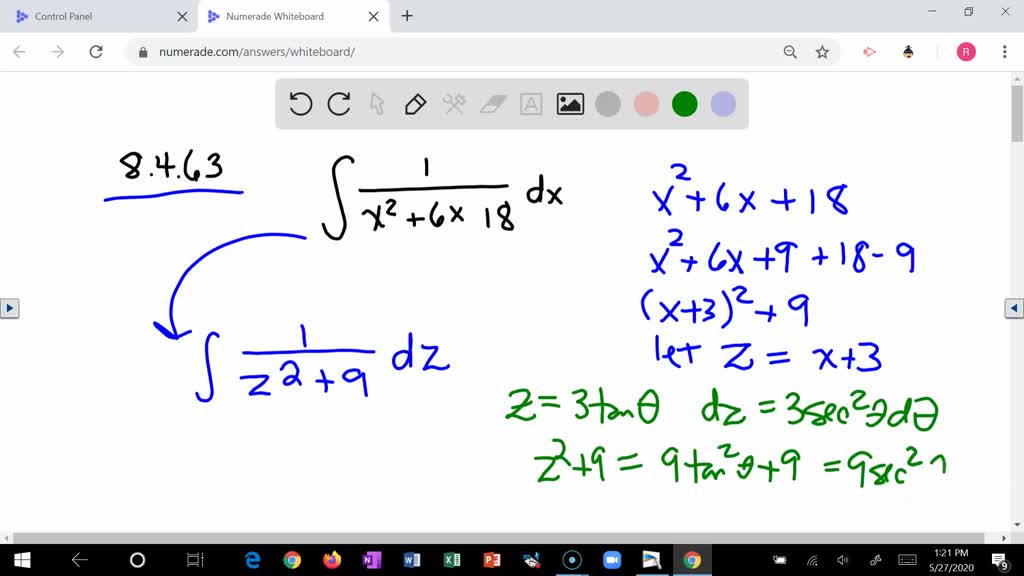 Control Panel
Numerade Whiteboard
numerade.com/answers/whiteboard/
R
A
8.4.63
∫ 1/(x² + 6x 18) dx
x² + 6x + 18
x² + 6x + 9 + 18 - 9
(x+3)² + 9
let z = x+3
∫ 1/(z² + 9) dz
z = 3tanθ dz = 3sec²θdθ
z² + 9 = 9tan²θ + 9 = 9sec²
1:21 PM
5/27/2020
9